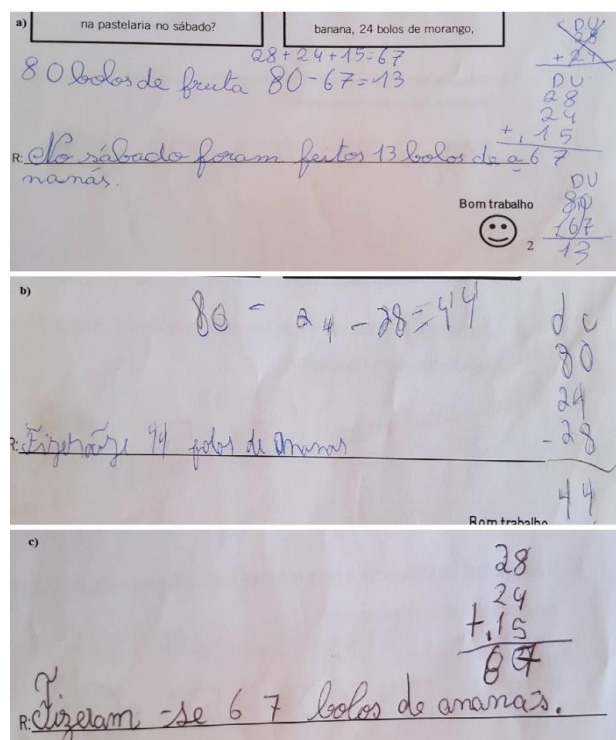 a)
na pastelaria no sábado?
banana, 24 bolos de morango,
28+24+15=67
80 bolos de fruta 80-67=13
DU
28
+24
DU
28
24
+ 15
67
R: No sábado foram feitos 13 bolos de a
nanás.
DU
80
-67
13
Bom trabalho
2
b)
80 - 24 - 28 = 44
d u
80
24
- 28
44
44 de Ananas
Bom trabalho
c)
28
24
+ 15
67
R: Fizeram-se 67 bolos de ananás.